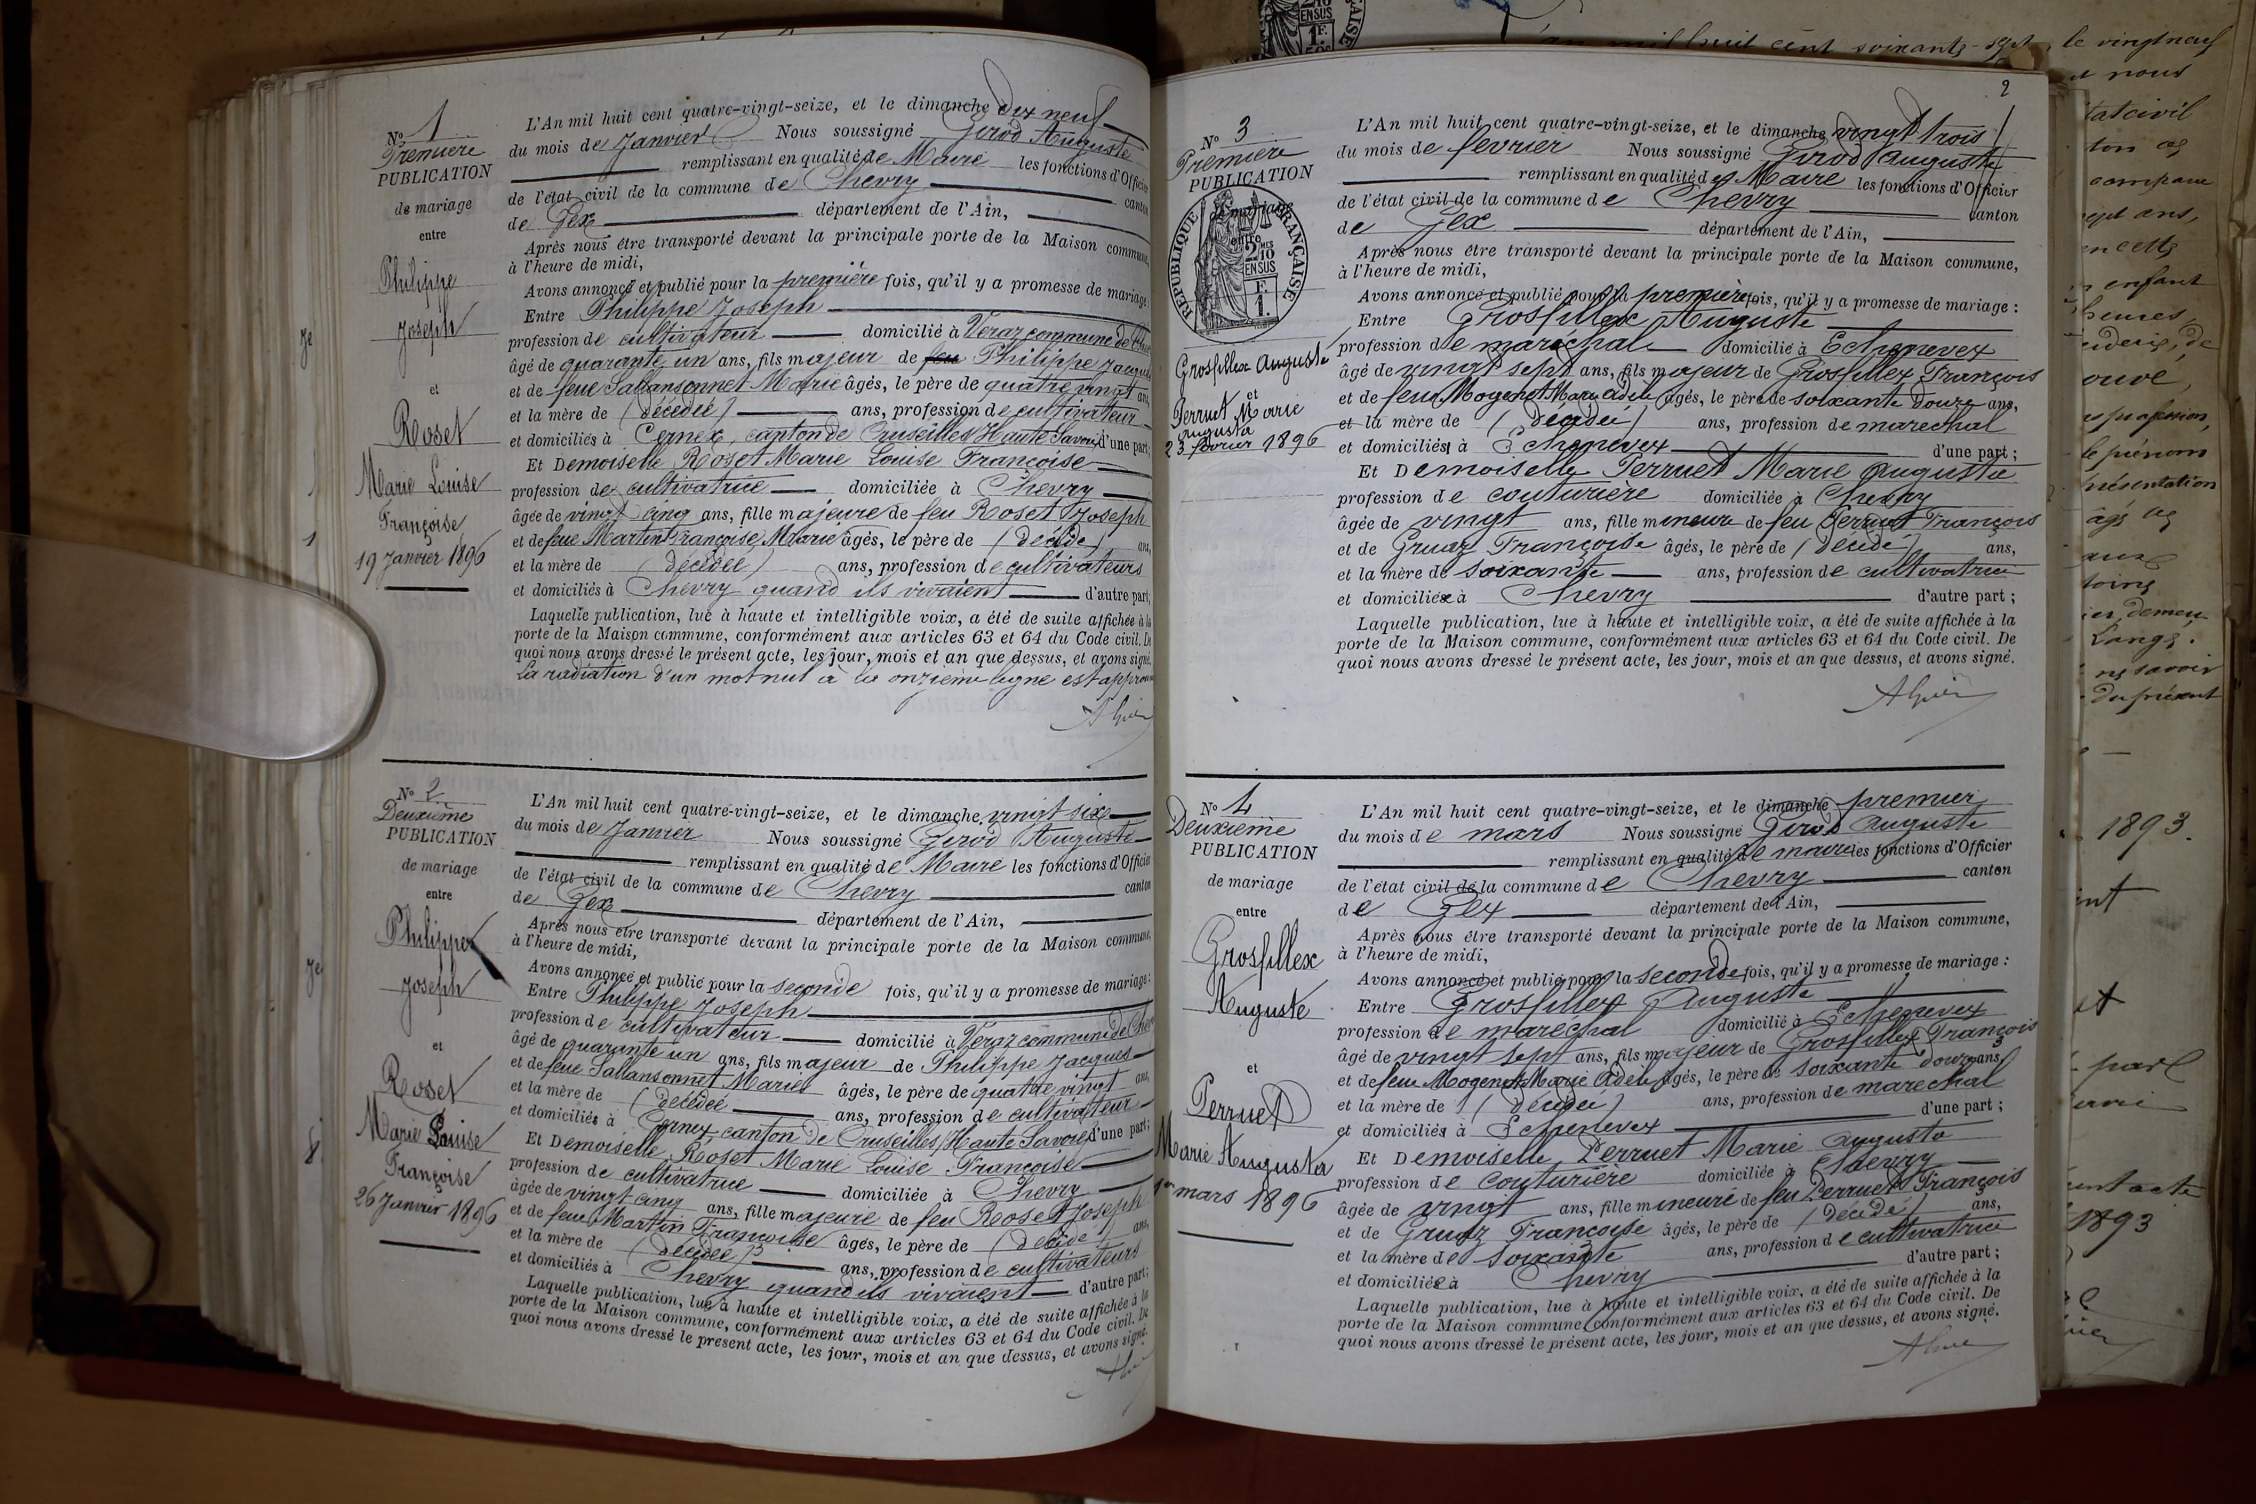 Nº 1
Première
PUBLICATION
de mariage
entre
Philippe
Joseph
et
Roset
Marie Louise
Françoise
19 Janvier 1896
L'An mil huit cent quatre-vingt-seize, et le dimanche dix neuf
du mois de Janvier Nous soussigné Girod Auguste
remplissant en qualité de Maire les fonctions d'Officier
de l'état civil de la commune de Chevry canton
de Gex département de l'Ain,
Après nous être transporté devant la principale porte de la Maison commune,
à l'heure de midi,
Avons annoncé et publié pour la première fois, qu'il y a promesse de mariage :
Entre Philippe Joseph
profession de cultivateur domicilié à Veraz commune de
âgé de quarante un ans, fils majeur de feu Philippe Jacques
et de feue Sallansonnet Marie âgés, le père de quatre vingt ans,
et la mère de (décédée) ans, profession de cultivateur
et domiciliés à Cernex, canton de Cruseilles (Haute Savoie) d'une part;
Et Demoiselle Roset Marie Louise Françoise
profession de cultivatrice domiciliée à Chevry
âgée de vingt cinq ans, fille majeure de feu Roset Joseph
et de feue Martin Françoise Marie âgés, le père de (décédé) ans,
et la mère de (décédée) ans, profession de cultivateurs
et domiciliés à Chevry quand ils vivaient d'autre part;
Laquelle publication, lue à haute et intelligible voix, a été de suite affichée à la
porte de la Maison commune, conformément aux articles 63 et 64 du Code civil. De
quoi nous avons dressé le présent acte, les jour, mois et an que dessus, et avons signé.
La radiation d'un mot nul à la onzième ligne est
Nº 2
Deuxième
PUBLICATION
de mariage
entre
Philippe
Joseph
et
Roset
Marie Louise
Françoise
26 Janvier 1896
L'An mil huit cent quatre-vingt-seize, et le dimanche vingt six
du mois de Janvier Nous soussigné Girod Auguste
remplissant en qualité de Maire les fonctions d'Officier
de l'état civil de la commune de Chevry canton
de Gex département de l'Ain,
Après nous être transporté devant la principale porte de la Maison commune,
à l'heure de midi,
Avons annoncé et publié pour la seconde fois, qu'il y a promesse de mariage :
Entre Philippe Joseph
profession de cultivateur domicilié à Veraz commune de
âgé de quarante un ans, fils majeur de Philippe Jacques
et de feue Sallansonnet Marie âgés, le père de quatre vingt ans,
et la mère de (décédée) ans, profession de cultivateur
et domiciliés à Cernex, canton de Cruseilles (Haute Savoie) d'une part;
Et Demoiselle Roset Marie Louise Françoise
profession de cultivatrice domiciliée à Chevry
âgée de vingt cinq ans, fille majeure de feu Roset Joseph
et de feue Martin Françoise âgés, le père de (décédé) ans,
et la mère de (décédée) ans, profession de cultivateurs
et domiciliés à Chevry quand ils vivaient d'autre part;
Laquelle publication, lue à haute et intelligible voix, a été de suite affichée à la
porte de la Maison commune, conformément aux articles 63 et 64 du Code civil. De
quoi nous avons dressé le présent acte, les jour, mois et an que dessus, et avons signé.
2
Nº 3
Première
PUBLICATION
de mariage
entre
RÉPUBLIQUE FRANÇAISE
2/10 EN SUS
1 F.
Grosfillex Auguste
et
Perruet Marie
Augusta
23 février 1896
L'An mil huit cent quatre-vingt-seize, et le dimanche vingt trois
du mois de février Nous soussigné Girod Auguste
remplissant en qualité de Maire les fonctions d'Officier
de l'état civil de la commune de Chevry canton
de Gex département de l'Ain,
Après nous être transporté devant la principale porte de la Maison commune,
à l'heure de midi,
Avons annoncé et publié pour la première fois, qu'il y a promesse de mariage :
Entre Grosfillex Auguste
profession de maréchal domicilié à Echenevex
âgé de vingt sept ans, fils majeur de Grosfillex François
et de feue Mogenet Marie Adèle âgés, le père de soixante douze ans,
et la mère de (décédée) ans, profession de marechal
et domiciliés à Echenevex d'une part ;
Et Demoiselle Perruet Marie Augusta
profession de couturière domiciliée à Chevry
âgée de vingt ans, fille mineure de feu Perruet François
et de Gruaz Françoise âgés, le père de (décédé) ans,
et la mère de soixante ans, profession de cultivatrice
et domiciliée à Chevry d'autre part ;
Laquelle publication, lue à haute et intelligible voix, a été de suite affichée à la
porte de la Maison commune, conformément aux articles 63 et 64 du Code civil. De
quoi nous avons dressé le présent acte, les jour, mois et an que dessus, et avons signé.
Nº 4
Deuxième
PUBLICATION
de mariage
entre
Grosfillex
Auguste
et
Perruet
Marie Augusta
1er mars 1896
L'An mil huit cent quatre-vingt-seize, et le dimanche premier
du mois de mars Nous soussigné Girod Auguste
remplissant en qualité de maire les fonctions d'Officier
de l'état civil de la commune de Chevry canton
de Gex département de l'Ain,
Après nous être transporté devant la principale porte de la Maison commune,
à l'heure de midi,
Avons annoncé et publié pour la seconde fois, qu'il y a promesse de mariage :
Entre Grosfillex Auguste
profession de marechal domicilié à Echenevex
âgé de vingt sept ans, fils majeur de Grosfillex François
et de feue Mogenet Marie Adèle âgés, le père de soixante douze ans,
et la mère de (décédée) ans, profession de marechal
et domiciliés à Echenevex d'une part ;
Et Demoiselle Perruet Marie Augusta
profession de couturière domiciliée à Chevry
âgée de vingt ans, fille mineure de feu Perruet François
et de Gruaz Françoise âgés, le père de (décédé) ans,
et la mère de soixante ans, profession de cultivatrice
et domiciliée à Chevry d'autre part ;
Laquelle publication, lue à haute et intelligible voix, a été de suite affichée à la
porte de la Maison commune, conformément aux articles 63 et 64 du Code civil. De
quoi nous avons dressé le présent acte, les jour, mois et an que dessus, et avons signé.
EN SUS
1 F.
mil huit cent soixante-sept, le vingt neuf
nous
compare
ans,
enfant
heures
profession,
le prénom
présentation
demeu
savoir
du présent
1893.
par
acte
1893